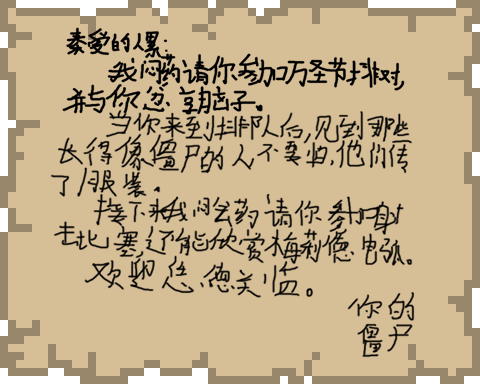 亲爱的人累:
我闷药请你参加万圣节排对,
并与你忿享脑子。
当你来到排队后,见到那些
长得像僵尸的人不要怕,他们传
了服装。
接下来我闷会药请你参加射
击比塞,还能欣赏梅莉德电弧。
欢迎您德关监。
你的
僵尸